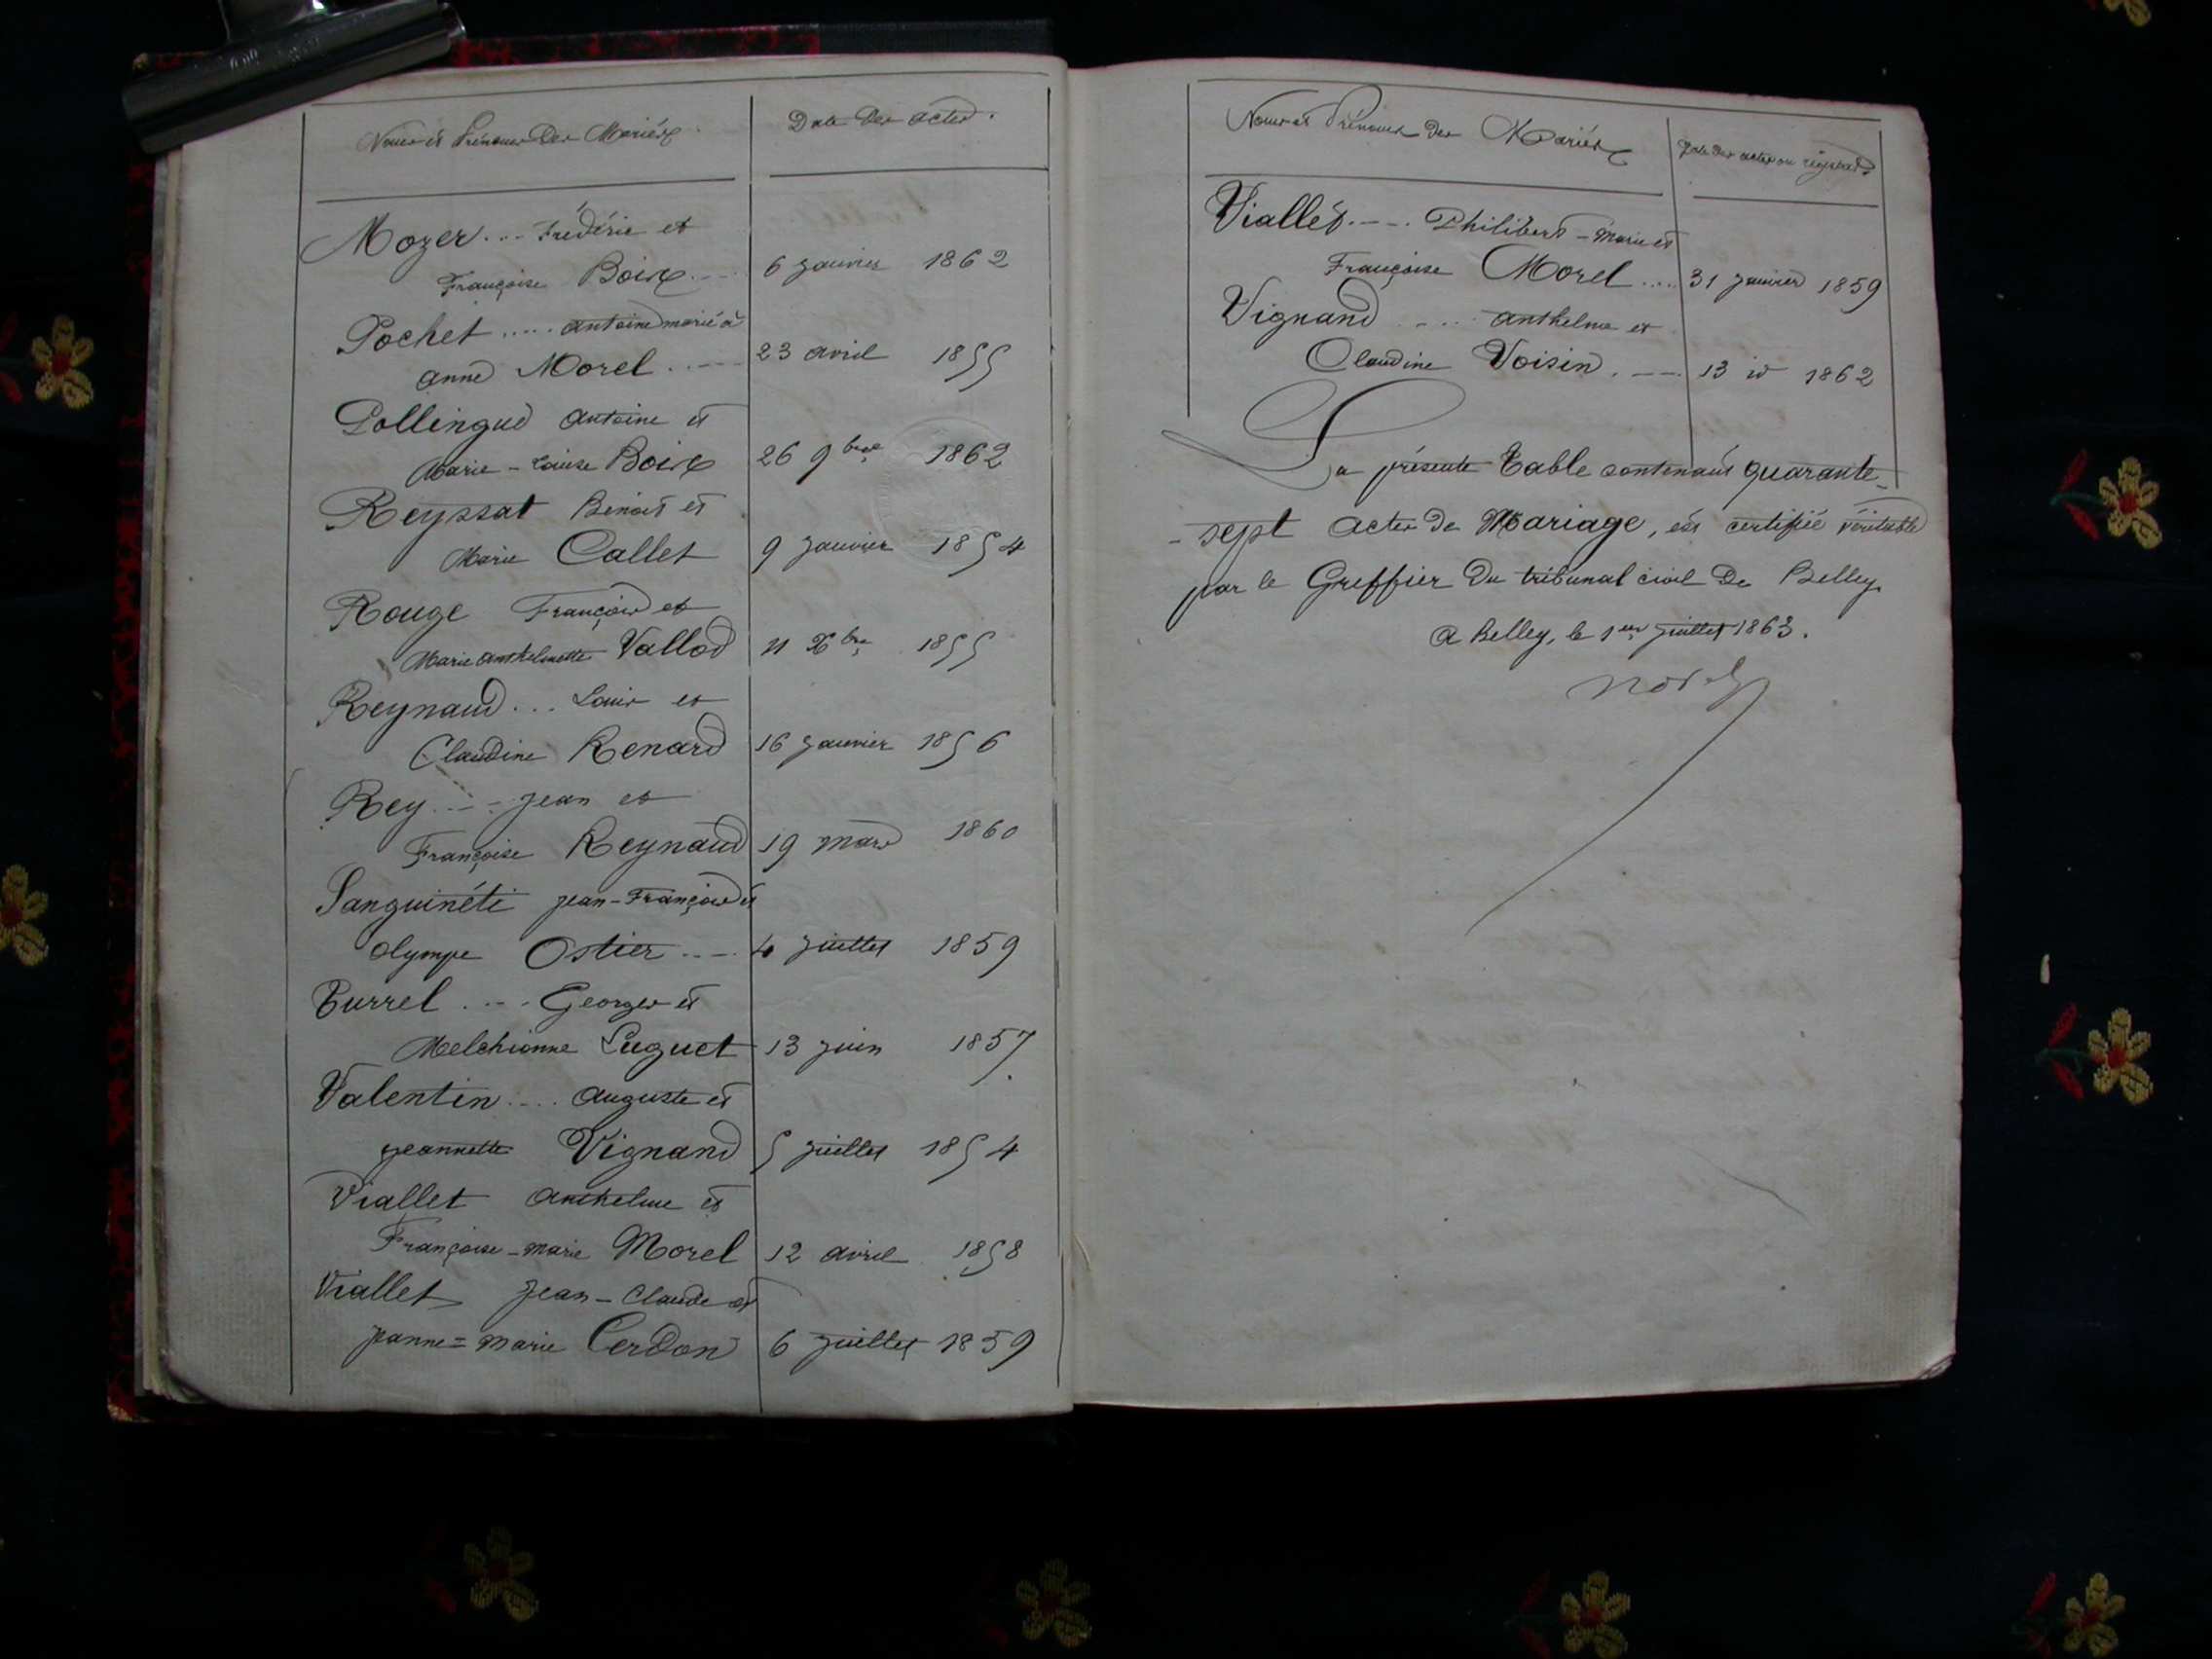 Noms et Prénoms Des Mariés. Date Des actes.
Mozer ... Frédéric et
Françoise Boix .... 6 janvier 1862
Pochet ..... antoine marié à
anne Morel ..... 23 avril 1855
Pollingue antoine et
Marie - Louise Boix 26 9bre 1862
Reyssat Benoit et
Marie Callet 9 janvier 1854
Rouge François et
Marie anthelmette Vallod 11 Xbre 1855
Reynaud ... Louis et
Claudine Renard 16 janvier 1856
Rey .... jean et
Françoise Reynaud 19 mars 1860
Sanguinéti jean - François et
olympe Ostier .... 4 juillet 1859
Turrel .... Georges et
Melchionne Luguet 13 juin 1857.
Valentin .... auguste et
jeannette Vignand 5 juillet 1854
Viallet anthelme et
Françoise - marie Morel 12 avril 1858
Viallet jean - Claude et
jeanne = marie Cerdon 6 juillet 1859
Noms et Prénoms des Mariés Date des actes ou registres
Viallet .... Philibert - marie et
Françoise Morel .... 31 janvier 1859
Vignand ..... anthelme et
Claudine Voisin .... 13 id 1862
La présente Table contenant quarante
- sept actes de Mariage, est certifiée véritable
par le Greffier du tribunal civil De Belley.
a Belley, le 1er juillet 1863.